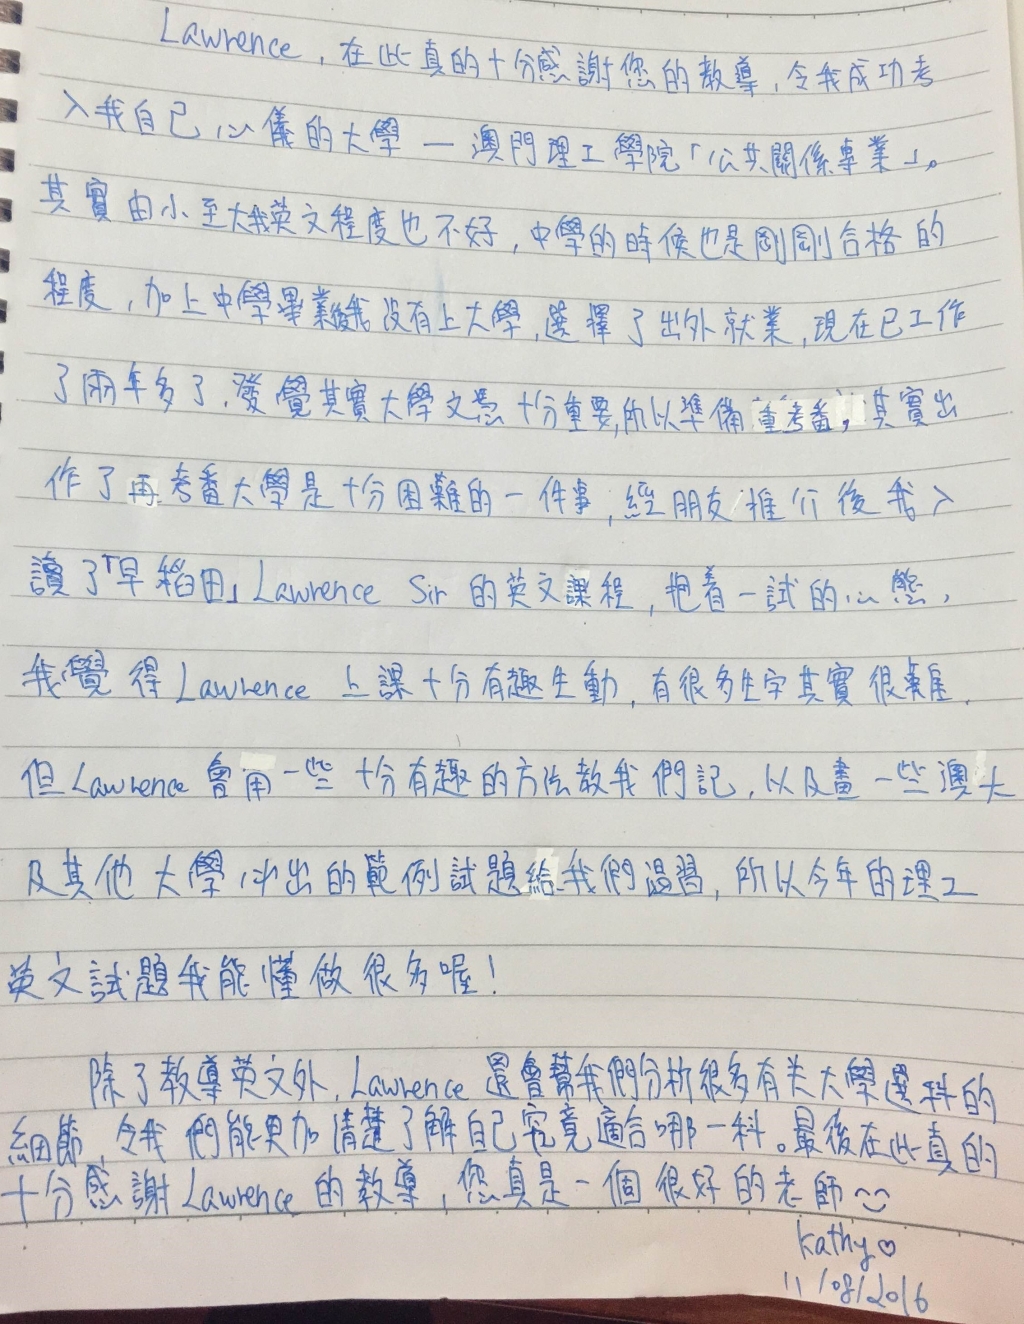 Lawrence，在此真的十分感謝您的教導，令我成功考
入我自己心儀的大學 — 澳門理工學院「公共關係專業」。
其實由小至大我英文程度也不好，中學的時候也是剛剛合格的
程度，加上中學畢業後我沒有上大學，選擇了出外就業，現在已工作
了兩年多了，發覺其實大學文憑十分重要，所以準備重考番，其實出
作了再考番大學是十分困難的一件事，經朋友推介後我入
讀了「早稻田」Lawrence Sir 的英文課程，抱着一試的心態，
我覺得Lawrence 上課十分有趣生動，有很多生字其實很難，
但Lawrence 會用一些十分有趣的方法教我們記，以及畫一些澳大
及其他大學出的範例試題給我們溫習，所以今年的理工
英文試題我能懂做很多喔！
除了教導英文外，Lawrence 還會幫我們分析很多有关大學選科的
細節，令我們能更加清楚了解自己究竟適合哪一科。最後在此真的
十分感謝Lawrence 的教導，您真是一個很好的老師
Kathy♡
11/08/2016